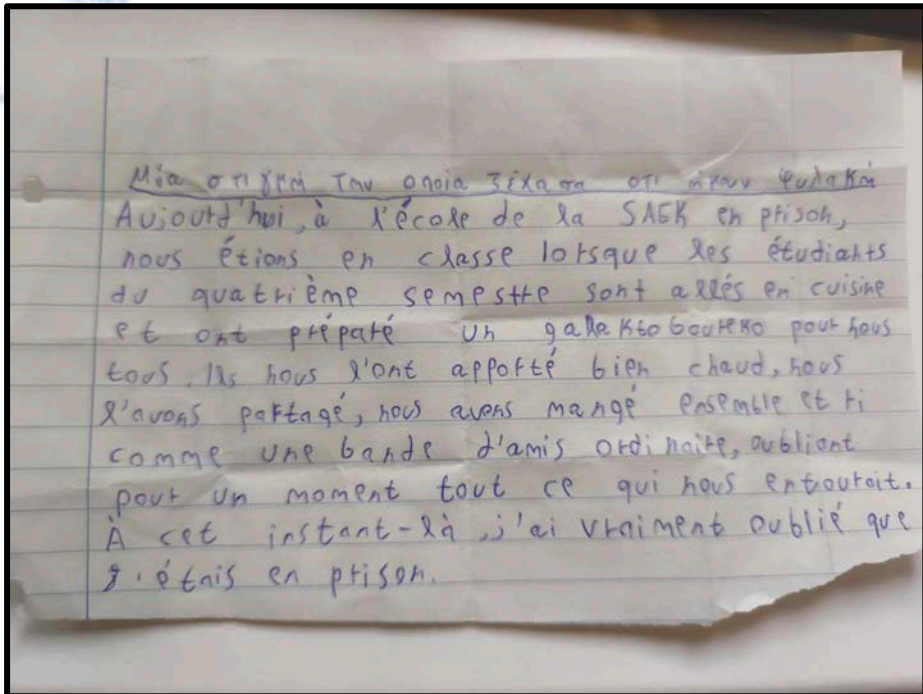 Μία στιγμή την οποία ξέχασα οτι ήμουν φυλακή
Aujourd'hui, à l'école de la SAEK en prison,
nous étions en classe lorsque les étudiants
du quatrième semestre sont allés en cuisine
et ont préparé un galaktoboureko pour nous
tous. Ils nous l'ont apporté bien chaud, nous
l'avons partagé, nous avons mangé ensemble et ri
comme une bande d'amis ordinaire, oubliant
pour un moment tout ce qui nous entourait.
À cet instant-là, j'ai vraiment oublié que
j'étais en prison.